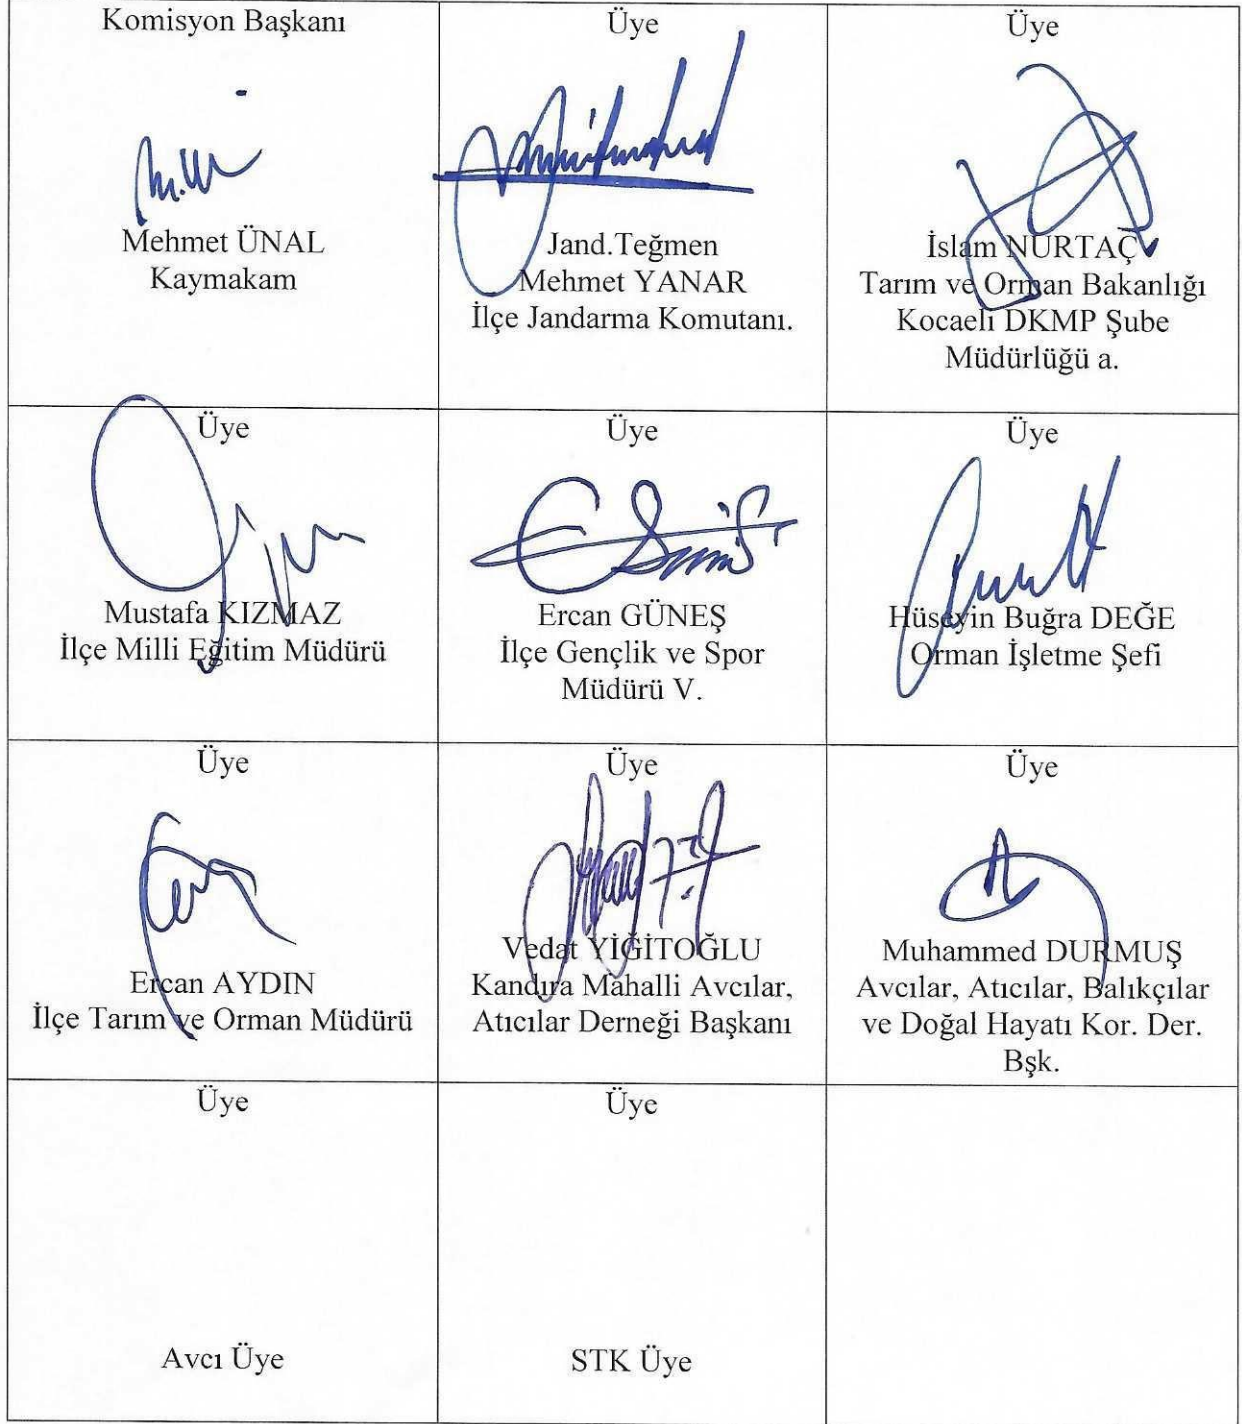 Komisyon Başkanı
Mehmet ÜNAL
Kaymakam
Üye
Jand.Teğmen
Mehmet YANAR
İlçe Jandarma Komutanı.
Üye
İslam NURTAÇ
Tarım ve Orman Bakanlığı
Kocaeli DKMP Şube
Müdürlüğü a.
Üye
Mustafa KIZMAZ
İlçe Milli Eğitim Müdürü
Üye
Ercan GÜNEŞ
İlçe Gençlik ve Spor
Müdürü V.
Üye
Hüseyin Buğra DEĞE
Orman İşletme Şefi
Üye
Ercan AYDIN
İlçe Tarım ve Orman Müdürü
Üye
Vedat YİĞİTOĞLU
Kandıra Mahalli Avcılar,
Atıcılar Derneği Başkanı
Üye
Muhammed DURMUŞ
Avcılar, Atıcılar, Balıkçılar
ve Doğal Hayatı Kor. Der.
Bşk.
Üye
Avcı Üye
Üye
STK Üye